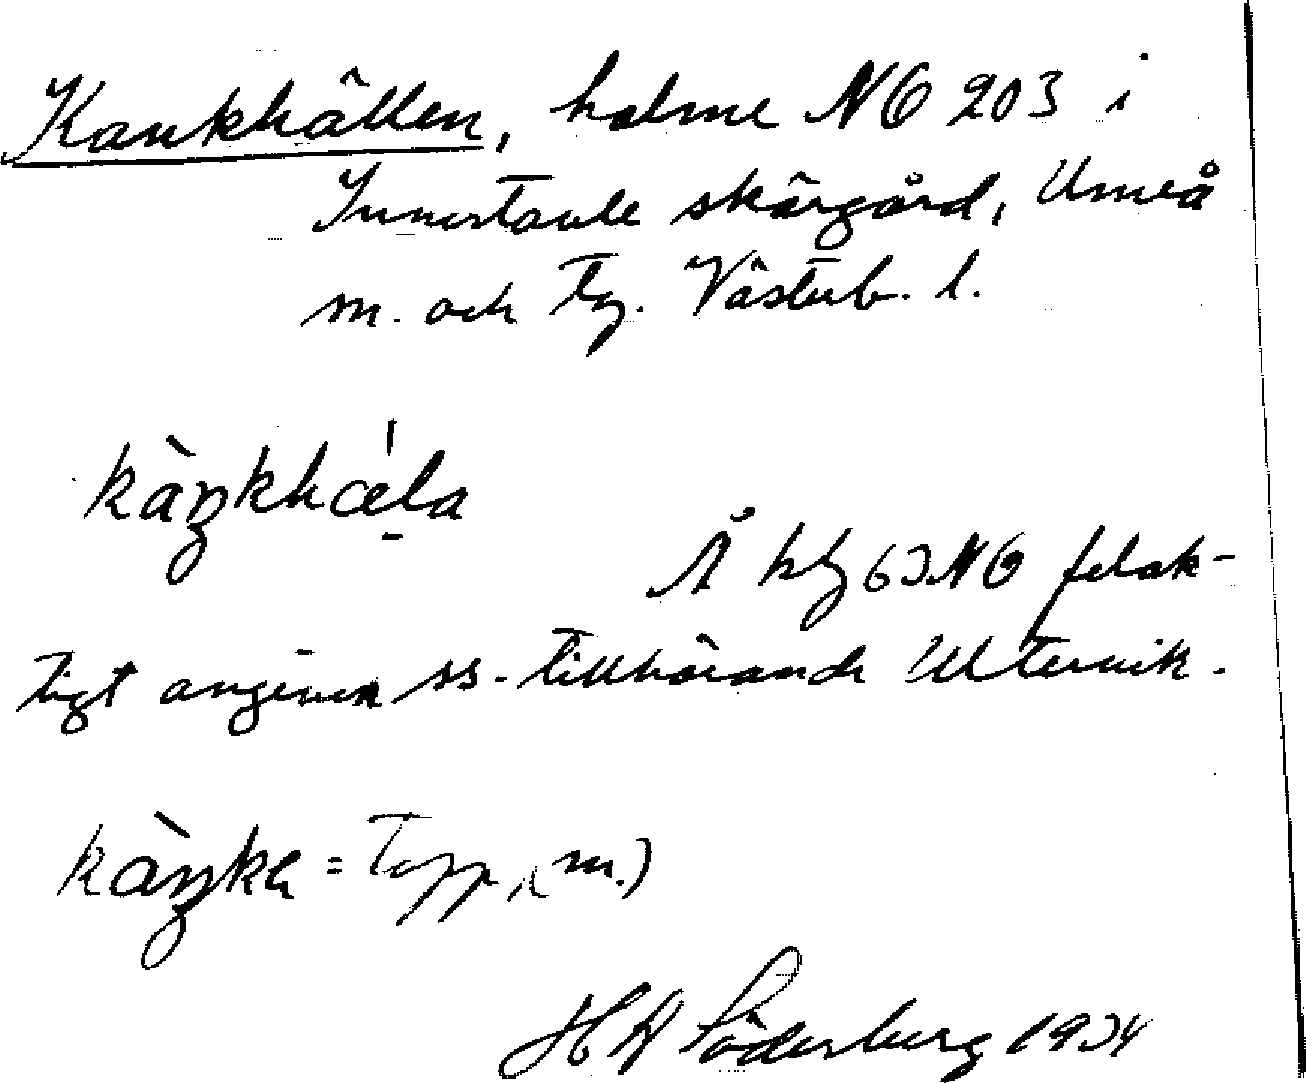 Kankhällen, holme NO 203 i
Innertavle skärgård, Umeå
sn. och tg. Västerb. l.
kàŋkhǽla
Å kbl 63 NO felak-
tigt angiven ss. tillhörande Ultervik.
kàŋka = Topp, (m.)
H W Söderberg 1934